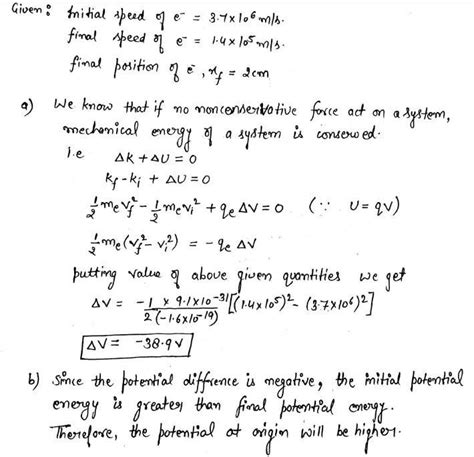 Given: Initial speed of e⁻ = 3.7×10⁶ m/s.
final speed of e⁻ = 1.4×10⁵ m/s.
final position of e⁻, x_f = 2cm
a) We know that if no nonconservative force act on a system,
mechanical energy of a system is conserved.
i.e ΔK + ΔU = 0
K_f - K_i + ΔU = 0
1/2 m_e v_f² - 1/2 m_e v_i² + q_e ΔV = 0 (∵ U = qV)
1/2 m_e (v_f² - v_i²) = - q_e ΔV
putting value of above given quantities we get
ΔV = -1 × 9.1×10⁻³¹ / 2(-1.6×10⁻¹⁹) [(1.4×10⁵)² - (3.7×10⁶)²]
ΔV = -38.9 V
b) Since the potential diffrence is negative, the initial potential
energy is greater than final potential energy.
Therefore, the potential at origin will be higher.